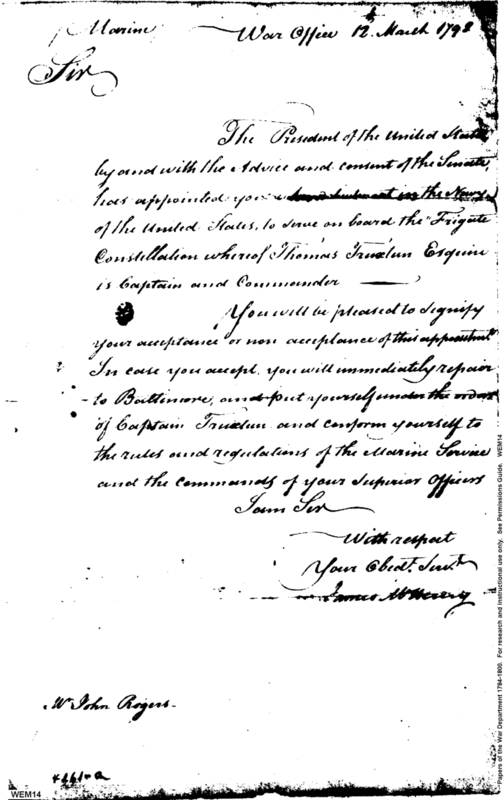 Marine War Office 12 March 1798
Sir
The President of the United States
by and with the Advice and consent of the Senate,
has appointed you in the Navy
of the United States, to serve on board the Frigate
Constellation whereof Thomas Truxtun Esquire
is Captain and Commander
You will be pleased to signify
your acceptance or non acceptance of this appointmt.
In case you accept, you will immediately repair
to Baltimore, and put yourself under the orders
of Captain Truxtun and conform yourself to
the rules and regulations of the Marine Service
and the commands of your Superior Officers
I am Sir
With respect
Your Obedt. Servt.
James McHenry
Mr John Rogers
WEM14
Papers of the War Department 1784-1800. For research and instructional use only. See Permissions Guide. WEM14